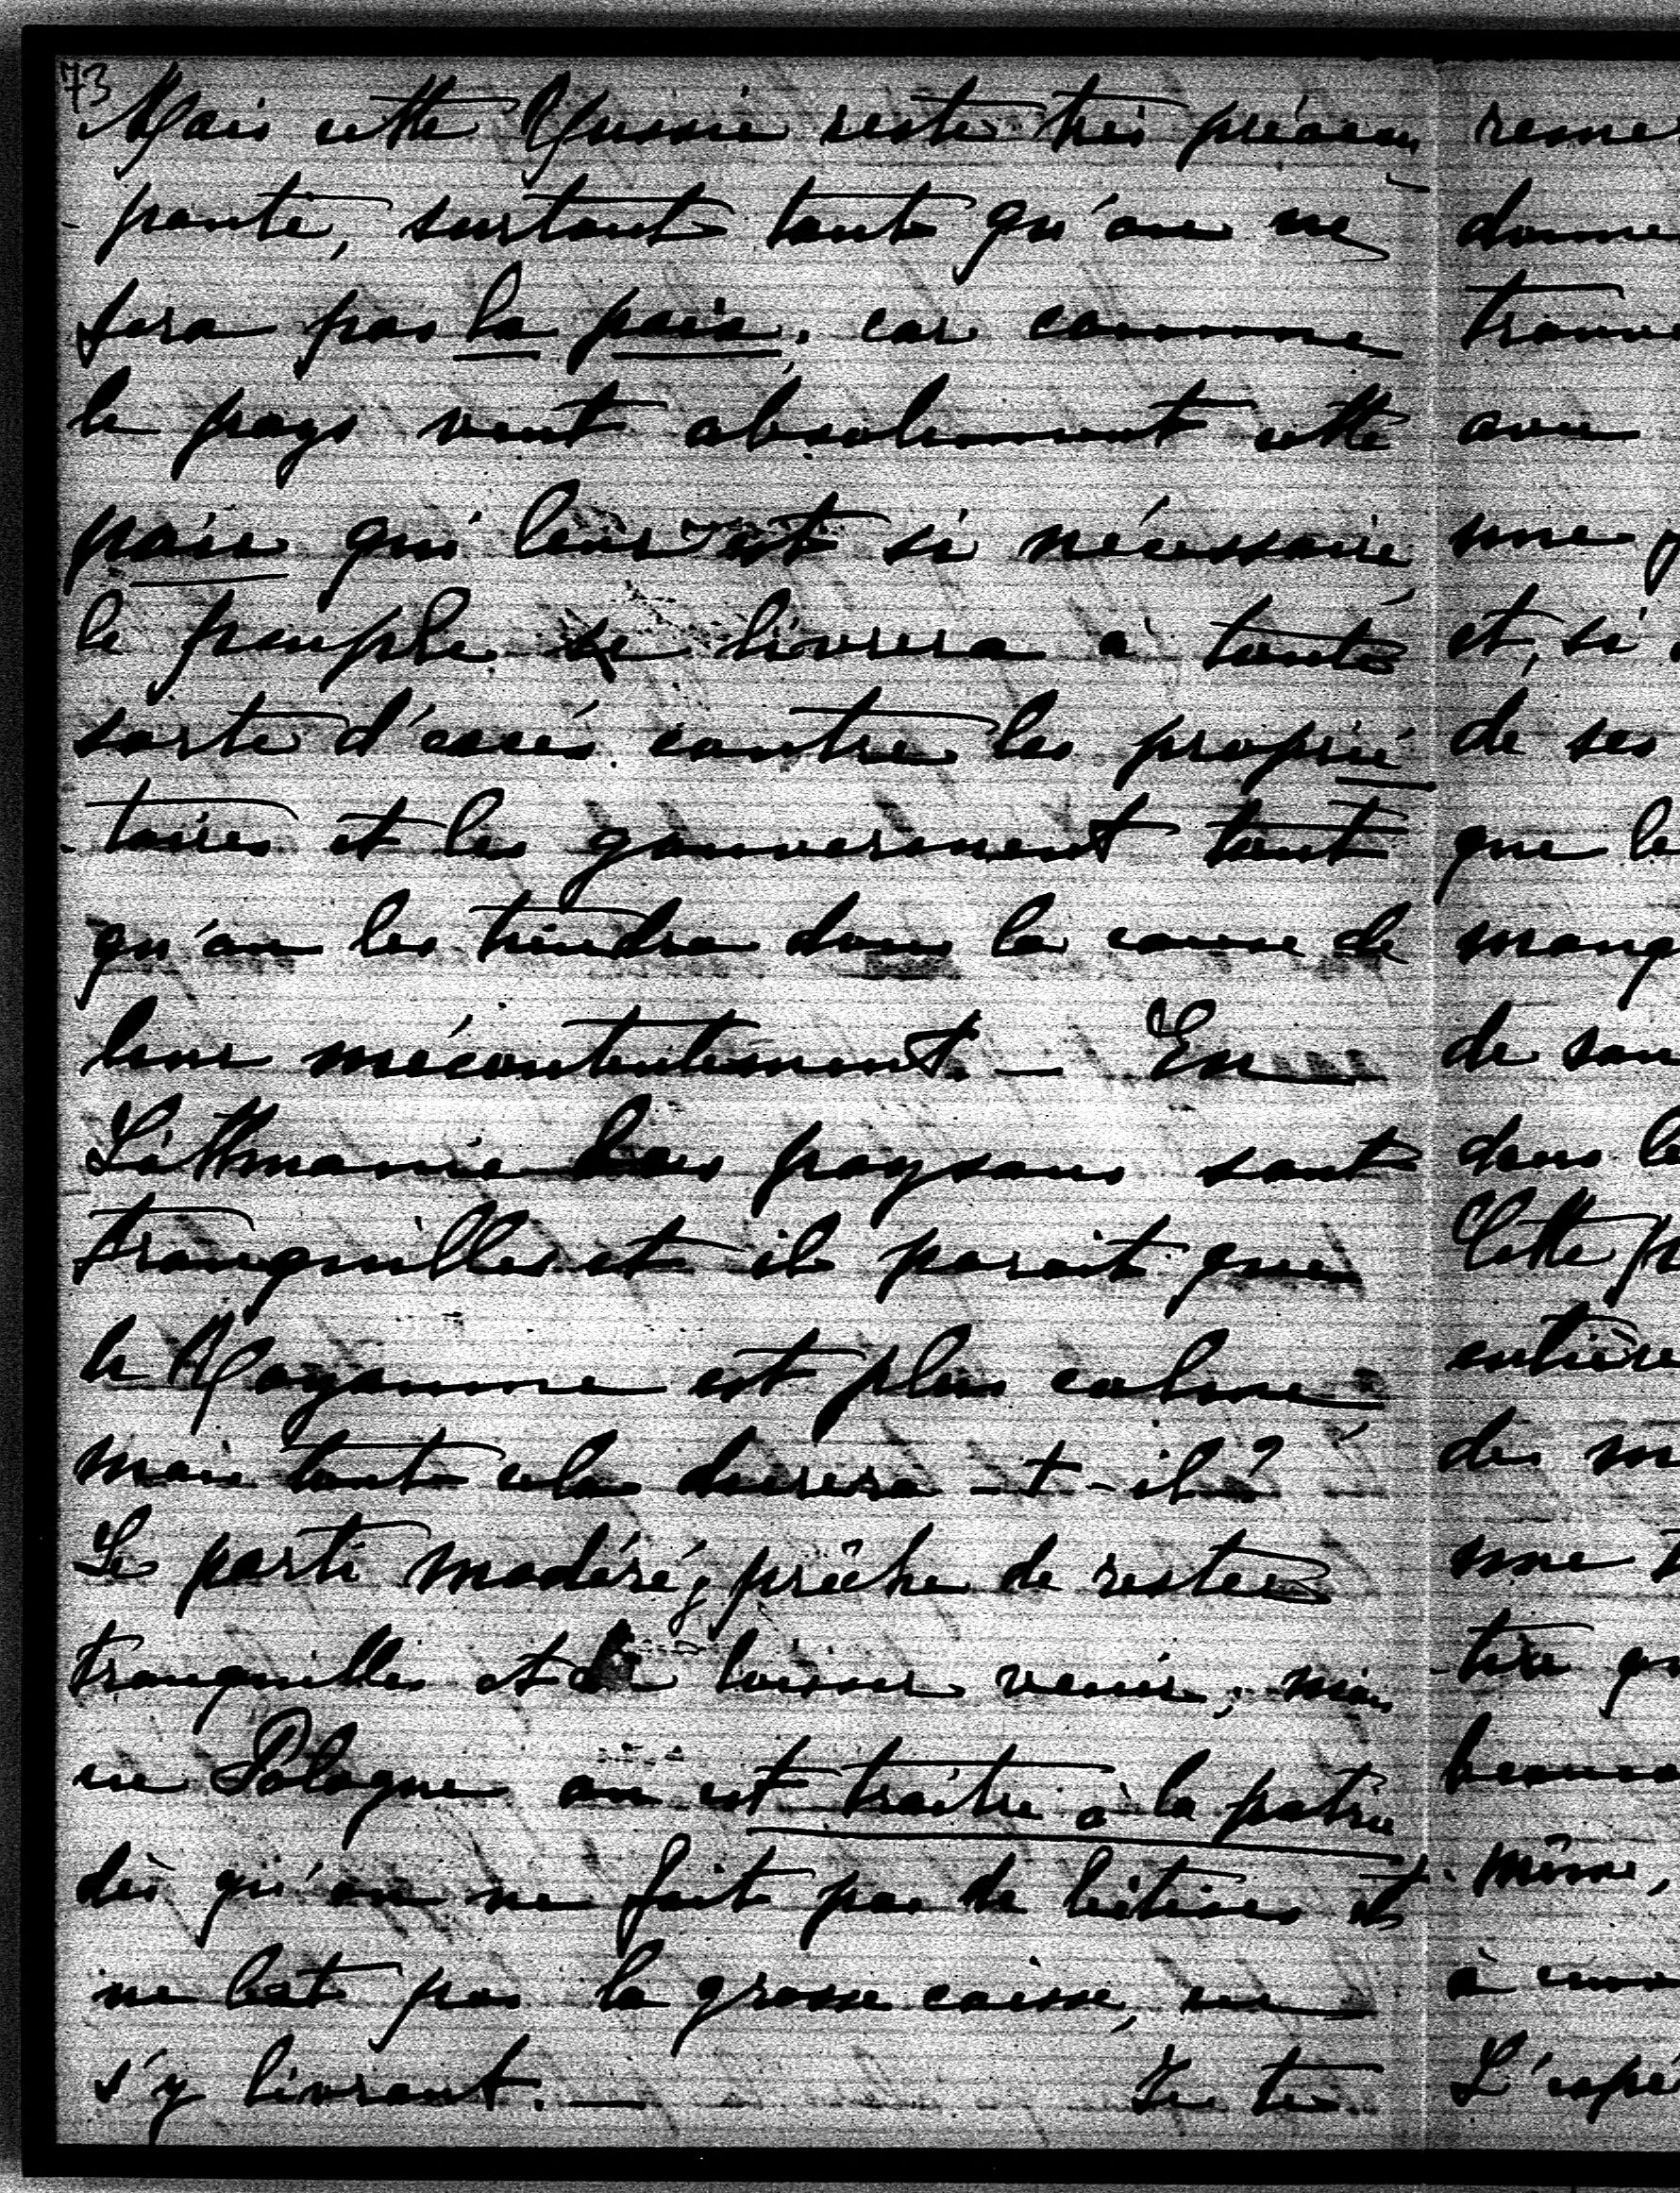 73
Mais cette Russie reste très préoccu
- pante, surtout tant qu'on ne
fera pas la paix, car comme
le pays veut absolument cette
paix qui leur est si nécessaire,
le peuple se livrera à toute
sorte d'excés contre les proprié
- taires et les gouvernement tant
qu'on les tiendra dans la cause de
leur mécontentement. — En
Lithuanie les paysans sont
tranquilles et il parait que
le Royaume est plus calme,
mais tout cela durera-t-il?
Le parti modéré, prêche de rester
tranquilles et de laisser venir, mais
en Pologne on est traître à la patrie
dès qu'on ne fait pas de bêtises et
ne bat pas la grosse caisse, en
s'y livrant. — Je te
donne
avec
une
et, si
de ses
que le
de son
dans le
Cette
entière
des
une
même,
à